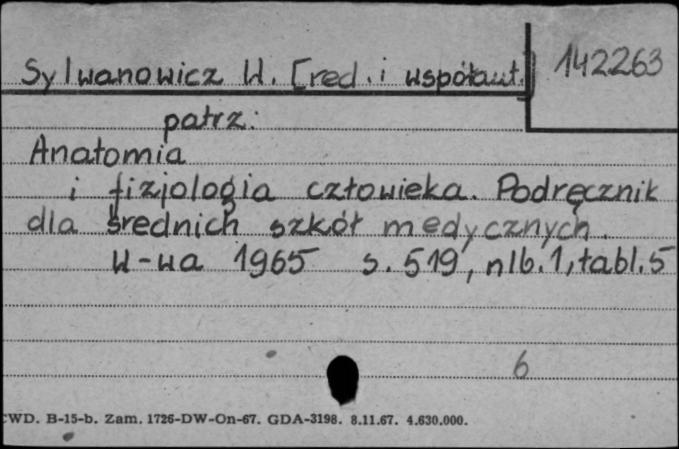 Sylwanowicz W. [red. i współaut.]
142263
patrz:
Anatomia
i fizjologia człowieka. Podręcznik
dla średnich szkół medycznych.
W-wa 1965 s. 519, nlb. 1, tabl. 5
6
CWD. B-15-b. Zam. 1726-DW-On-67. GDA-3198. 8.11.67. 4.630.000.